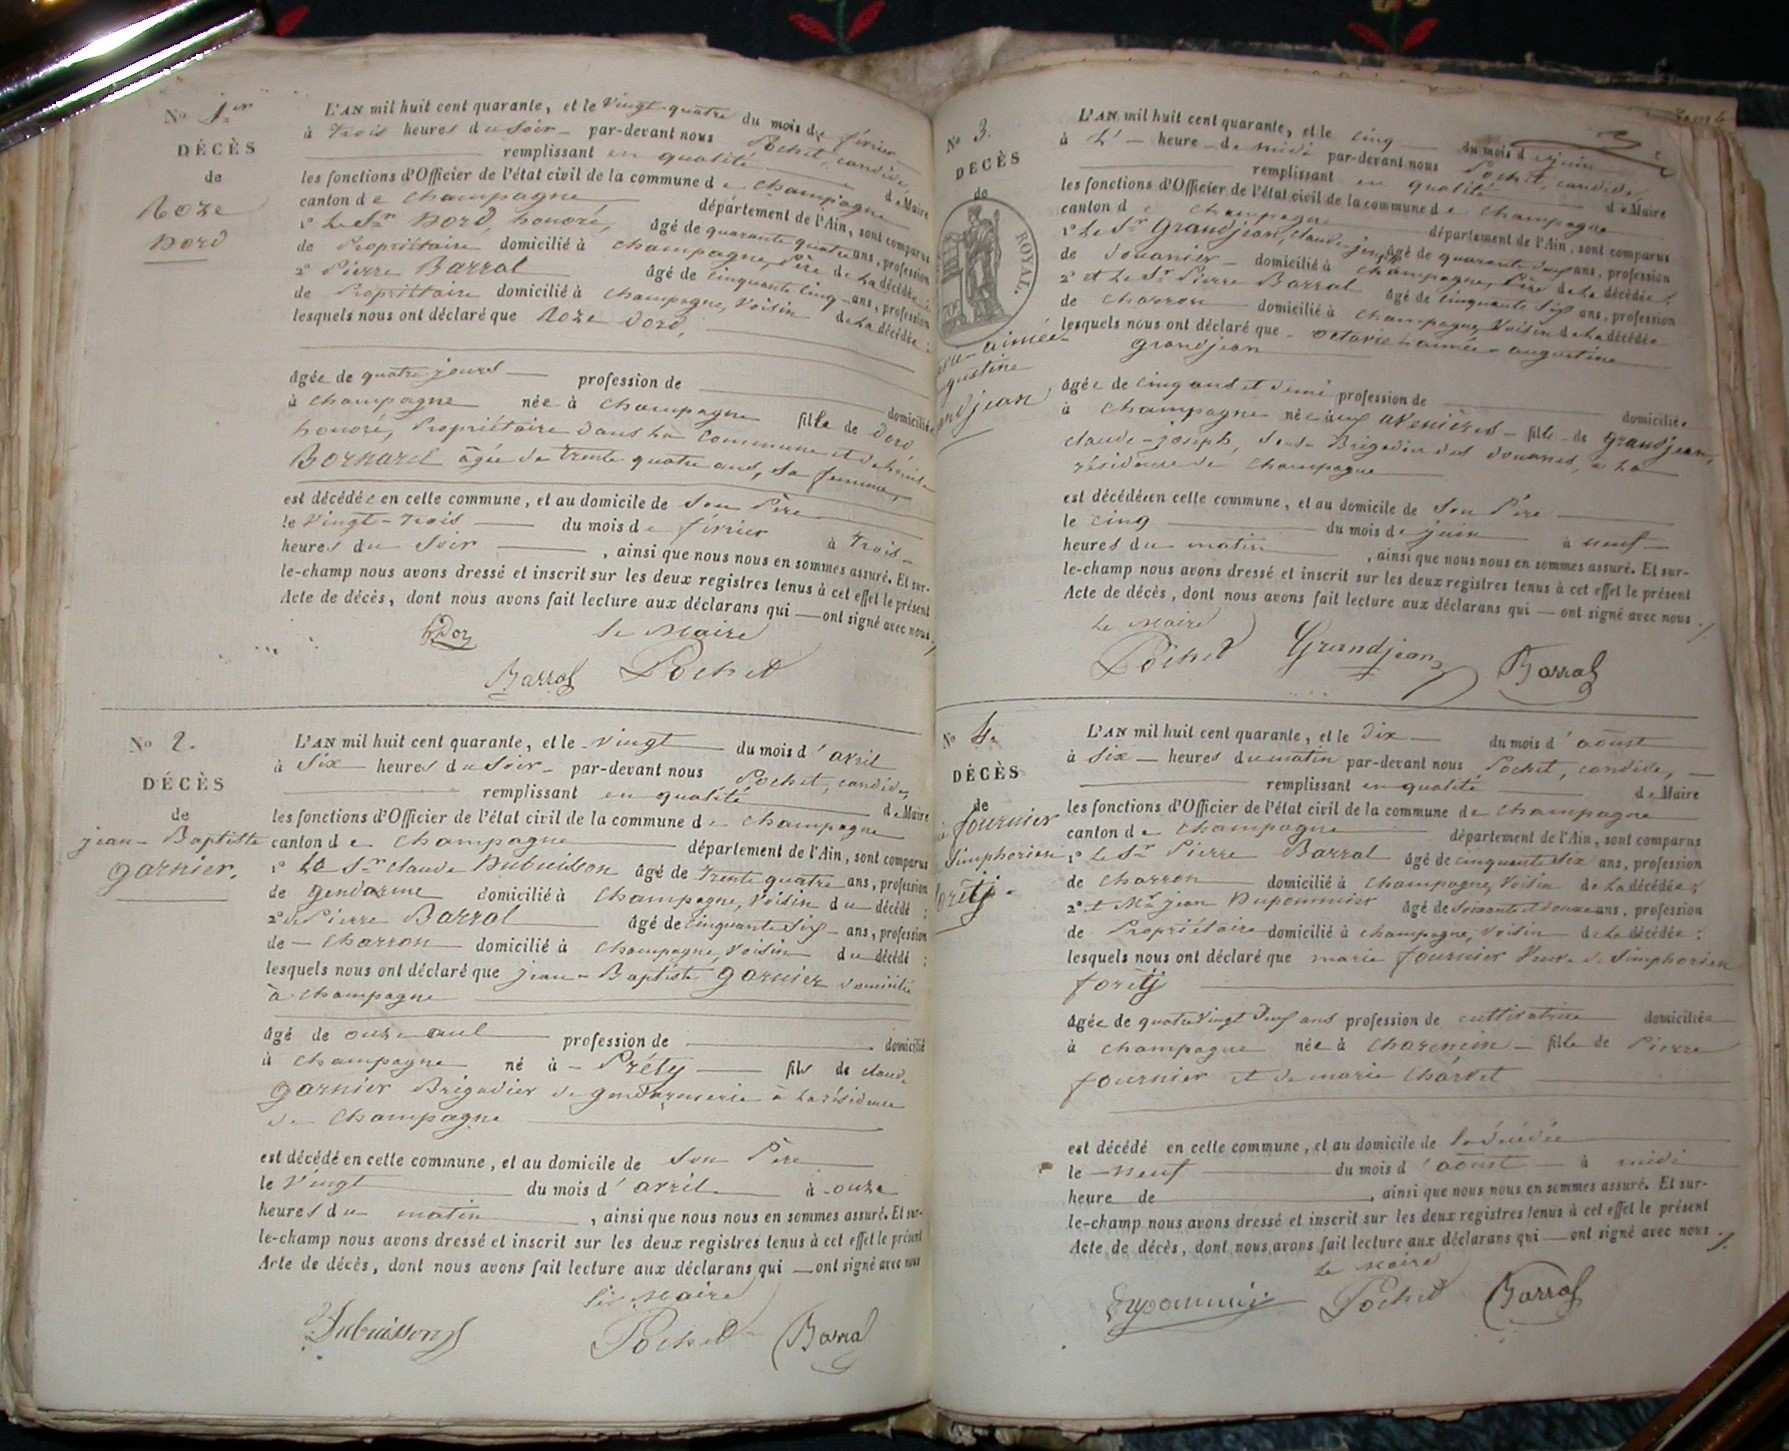 No 1er
DÉCÈS
de
Roze
Dord
L'AN mil huit cent quarante, et le vingt-quatre du mois de février
à trois heures du soir par-devant nous Pochet, candide,
remplissant en qualité de Maire
les fonctions d'Officier de l'état civil de la commune de champagne
canton de champagne département de l'Ain, sont comparus
1º Le Sr Dord, honoré, âgé de quarante quatre ans, profession
de Propriétaire domicilié à champagne, Père de La décédée;
2º Pierre Barral âgé de cinquante cinq ans, profession
de Propriétaire domicilié à champagne, Voisin de La décédée;
lesquels nous ont déclaré que Roze Dord,
âgée de quatre jours profession de
domiciliée
à champagne née à champagne fille de Dord
honoré, Propriétaire dans La commune et de
Bornard âgée de trente quatre ans, sa femme,
est décédée en cette commune, et au domicile de Son Père
le vingt-trois du mois de février à trois
heures du soir, ainsi que nous nous en sommes assuré. Et sur-
le-champ nous avons dressé et inscrit sur les deux registres tenus à cet effet le présent
Acte de décès, dont nous avons fait lecture aux déclarans qui ont signé avec nous
Le Maire
Barral Pochet
No 2.
DÉCÈS
de
jean-Baptiste
garnier.
L'AN mil huit cent quarante, et le vingt du mois d'avril
à Six heures du Soir par-devant nous Pochet, candide,
remplissant en qualité de Maire
les fonctions d'Officier de l'état civil de la commune de champagne
canton de champagne département de l'Ain, sont comparus
1º Le Sr claude Dubuisson âgé de trente quatre ans, profession
de gendarme domicilié à champagne, Voisin du décédé;
2º Pierre Barral âgé de cinquante six ans, profession
de charron domicilié à champagne, Voisin du décédé;
lesquels nous ont déclaré que jean-Baptiste garnier domicilié
à champagne
âgé de onze ans profession de domicilié
à champagne né à Préty fils de claude
garnier Brigadier de gendarmerie à La résidence
de champagne
est décédé en cette commune, et au domicile de Son Père
le vingt du mois d'avril à onze
heures du matin, ainsi que nous nous en sommes assuré. Et sur-
le-champ nous avons dressé et inscrit sur les deux registres tenus à cet effet le présent
Acte de décès, dont nous avons fait lecture aux déclarans qui ont signé avec nous
Le Maire
Dubuisson Pochet Barral
No 3.
DÉCÈS
de
ROYAL.
aimée
gustine
ndjean
L'AN mil huit cent quarante, et le cinq du mois de juin
à heure de midi par-devant nous Pochet, candide,
remplissant en qualité de Maire
les fonctions d'Officier de l'état civil de la commune de champagne
canton de champagne département de l'Ain, sont comparus
1º Le Sr Grandjean, claude-joseph âgé de quarante ans, profession
de Douanier domicilié à champagne, Père de La décédée;
2º et Le Sr Pierre Barral âgé de cinquante six ans, profession
de charron domicilié à champagne, Voisin de La décédée
lesquels nous ont déclaré que octavie-aimée-augustine
grandjean
âgée de cinq ans et demi profession de domiciliée
à champagne née aux avenières fille de grandjean,
claude-joseph, Brigadier des douanes, à La
résidence de champagne
est décédée en cette commune, et au domicile de Son Père
le cinq du mois de juin à neuf
heures du matin, ainsi que nous nous en sommes assuré. Et sur-
le-champ nous avons dressé et inscrit sur les deux registres tenus à cet effet le présent
Acte de décès, dont nous avons fait lecture aux déclarans qui ont signé avec nous
Le Maire
Pochet Grandjean Barral
No 4.
DÉCÈS
de
fournier
Simphorien
foretij
L'AN mil huit cent quarante, et le dix du mois d'août
à six heures du matin par-devant nous Pochet, candide,
remplissant en qualité de Maire
les fonctions d'Officier de l'état civil de la commune de champagne
canton de champagne département de l'Ain, sont comparus
1º Le Sr Pierre Barral âgé de cinquante six ans, profession
de charron domicilié à champagne, Voisin de La décédée;
2º et Mr jean Dupommier âgé de soixante et douze ans, profession
de Propriétaire domicilié à champagne, Voisin de La décédée;
lesquels nous ont déclaré que marie fournier Veuve de Simphorien
foretij
âgée de quatre vingt ans profession de cultivatrice domiciliée
à champagne née à charencin fille de Pierre
fournier et de marie charvet
est décédé en cette commune, et au domicile de La décédée
le neuf du mois d'août à midi
heure de , ainsi que nous nous en sommes assuré. Et sur-
le-champ nous avons dressé et inscrit sur les deux registres tenus à cet effet le présent
Acte de décès, dont nous avons fait lecture aux déclarans qui ont signé avec nous
Le Maire
Dupommier Pochet Barral